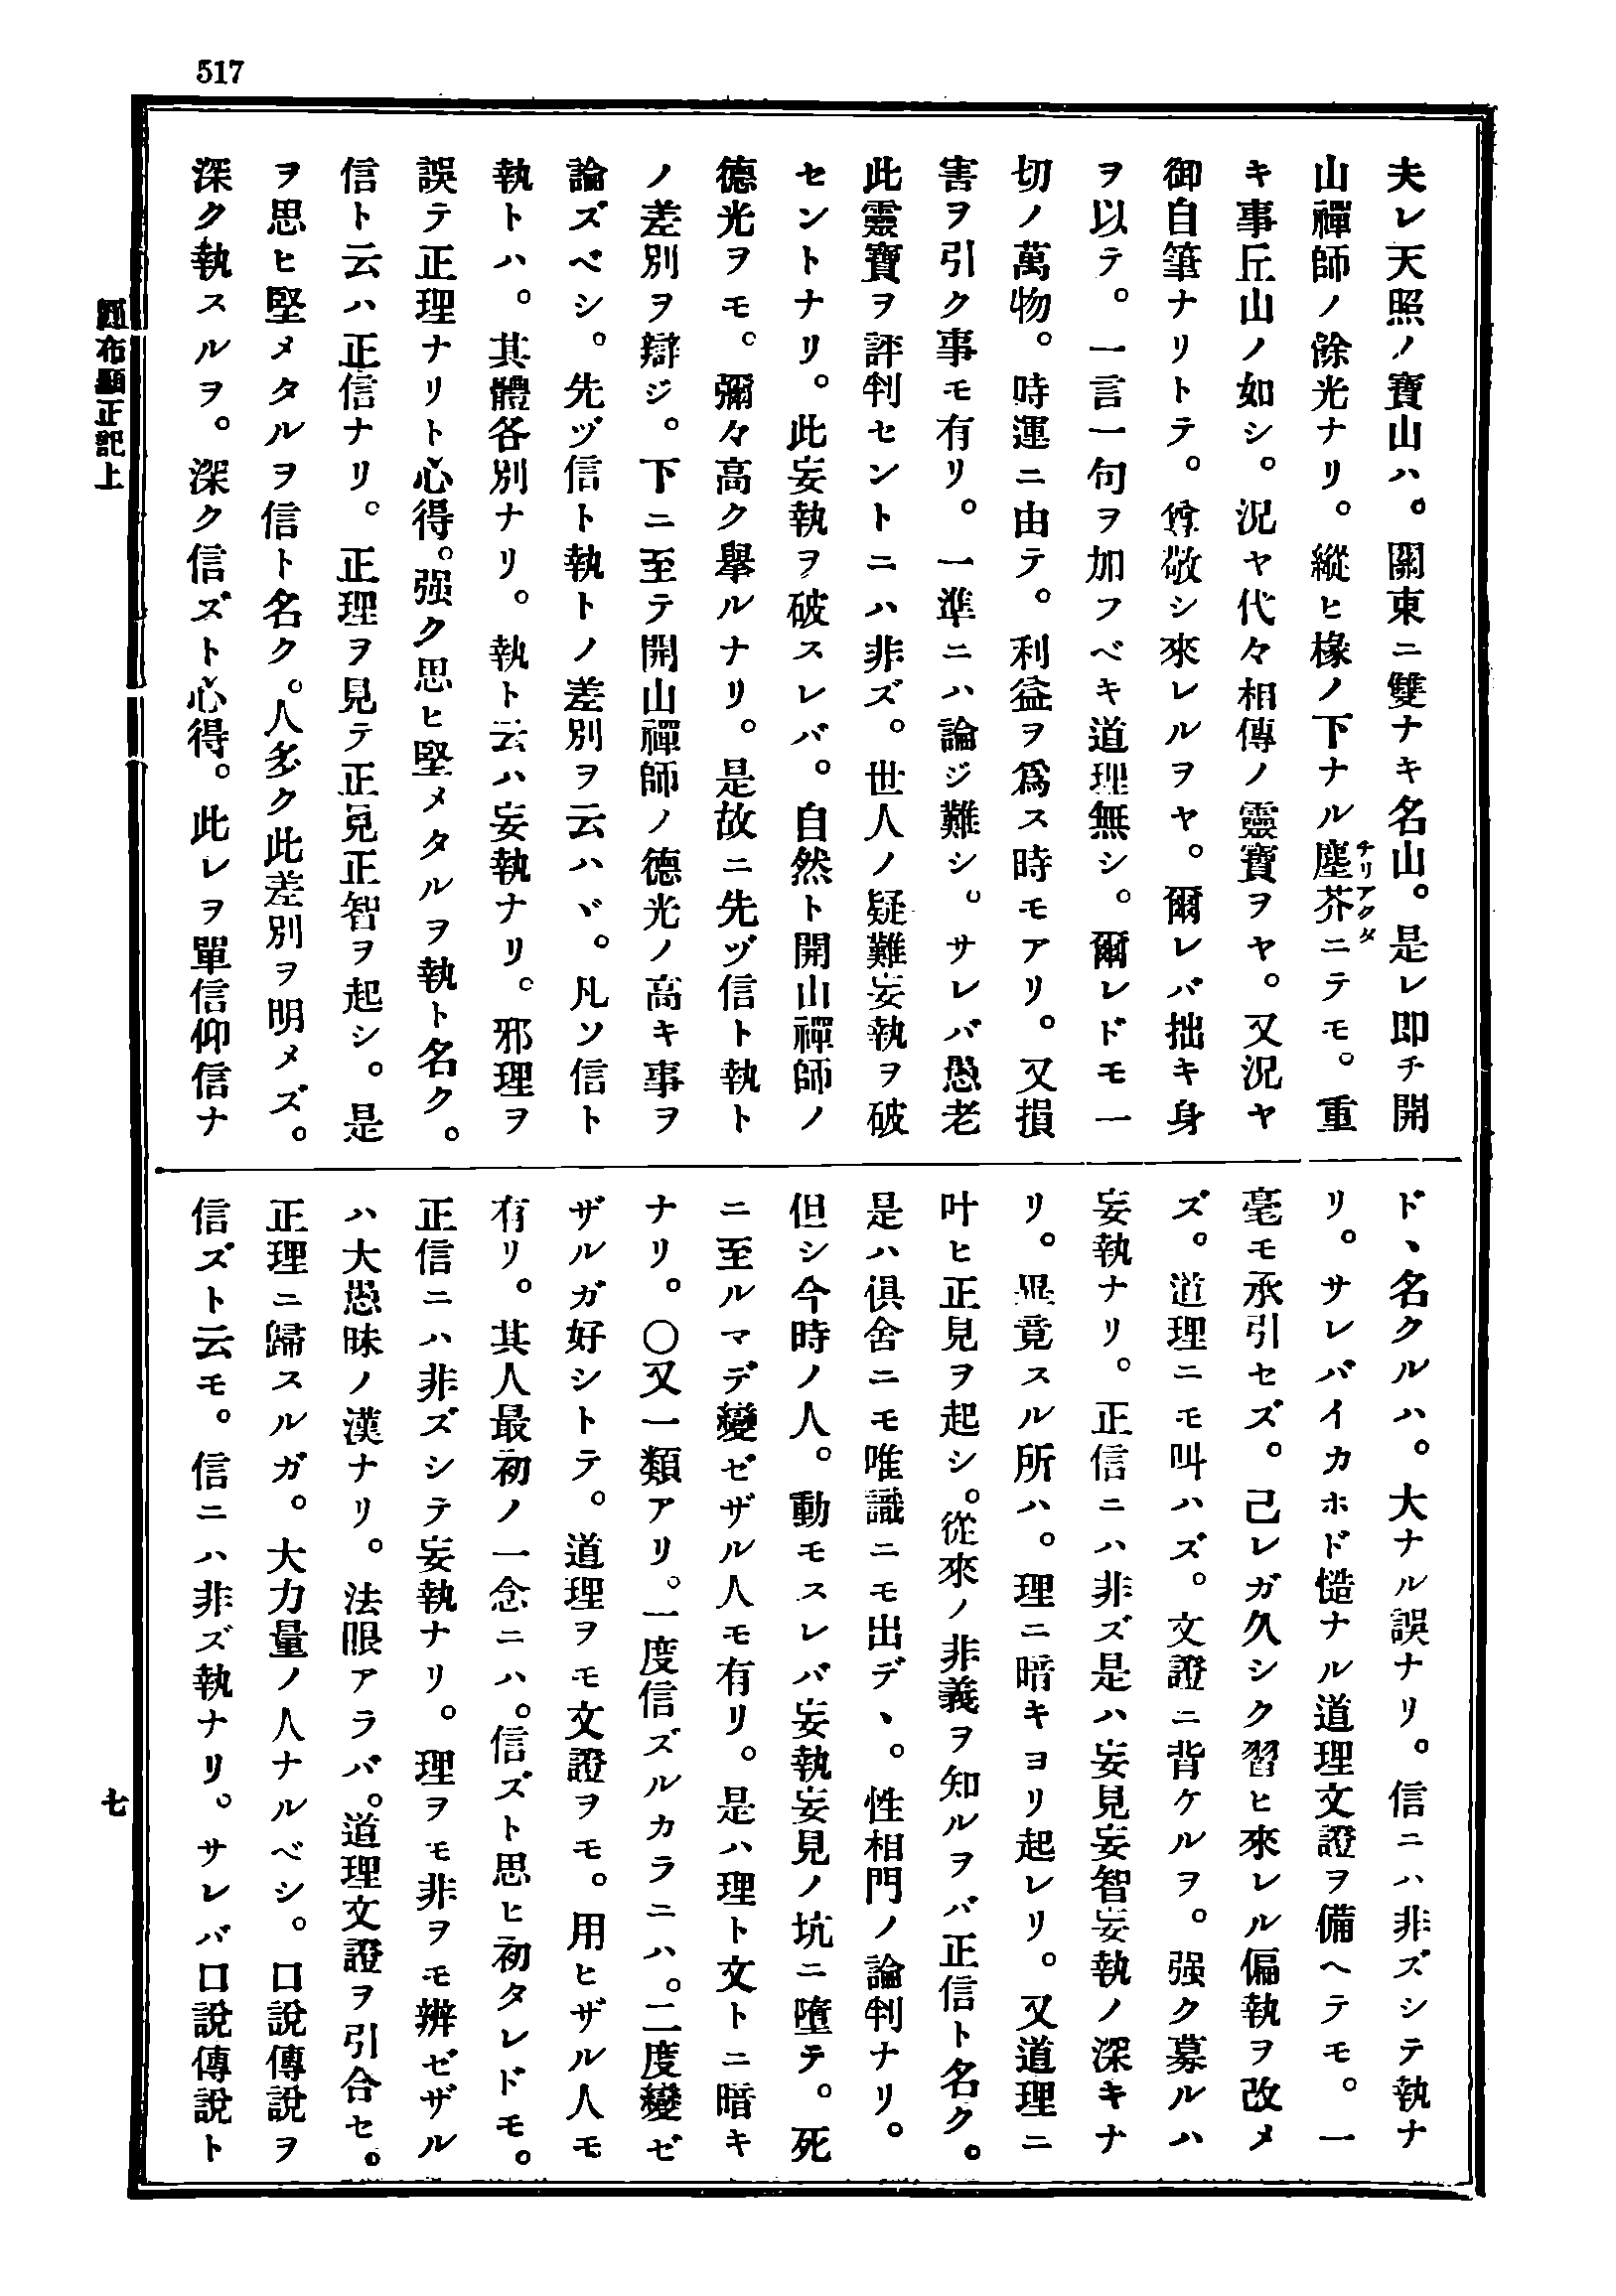 517
夫レ天照ノ寶山ハ。關東ニ雙ナキ名山。是レ即チ開
山禪師ノ餘光ナリ。縱ヒ椽ノ下ナル塵芥ニテモ。重
チリアクタ
キ事丘山ノ如シ。況ヤ代々相傳ノ靈寶ヲヤ。又況ヤ
御自筆ナリトテ。尊敬シ來レルヲヤ。爾レバ拙キ身
ヲ以テ。一言一句ヲ加フベキ道理無シ。爾レドモ一
切ノ萬物。時運ニ由テ。利益ヲ爲ス時モアリ。又損
害ヲ引ク事モ有リ。一準ニハ論ジ難シ。サレバ愚老
此靈寶ヲ評判セントニハ非ズ。世人ノ疑難妄執ヲ破
セントナリ。此妄執ヲ破スレバ。自然ト開山禪師ノ
德光ヲモ。彌々高ク擧ルナリ。是故ニ先ヅ信ト執ト
ノ差別ヲ辯ジ。下ニ至テ開山禪師ノ德光ノ高キ事ヲ
論ズベシ。先ヅ信ト執トノ差別ヲ云ハヾ。凡ソ信ト
執トハ。其體各別ナリ。執ト云ハ妄執ナリ。邪理ヲ
誤テ正理ナリト心得。强ク思ヒ堅メタルヲ執ト名ク。
信ト云ハ正信ナリ。正理ヲ見テ正見正智ヲ起シ。是
ヲ思ヒ堅メタルヲ信ト名ク。人多ク此差別ヲ明メズ。
深ク執スルヲ。深ク信ズト心得。此レヲ單信仰信ナ
ドヽ名クルハ。大ナル誤ナリ。信ニハ非ズシテ執ナ
リ。サレバイカホド慥ナル道理文證ヲ備ヘテモ。一
毫モ承引セズ。己レガ久シク習ヒ來レル偏執ヲ改メ
ズ。道理ニモ叫ハズ。文證ニ背ケルヲ。强ク募ルハ
妄執ナリ。正信ニハ非ズ是ハ妄見妄智妄執ノ深キナ
リ。畢竟スル所ハ。理ニ暗キヨリ起レリ。又道理ニ
叶ヒ正見ヲ起シ。從來ノ非義ヲ知ルヲバ正信ト名ク。
是ハ俱舍ニモ唯識ニモ出デヽ。性相門ノ論判ナリ。
但シ今時ノ人。動モスレバ妄執妄見ノ坑ニ墮テ。死
ニ至ルマデ變ゼザル人モ有リ。是ハ理ト文トニ暗キ
ナリ。〇又一類アリ。一度信ズルカラニハ。二度變ゼ
ザルガ好シトテ。道理ヲモ文證ヲモ。用ヒザル人モ
有リ。其人最初ノ一念ニハ。信ズト思ヒ初タレドモ。
正信ニハ非ズシテ妄執ナリ。理ヲモ非ヲモ辨ゼザル
ハ大愚昧ノ漢ナリ。法眼アラバ。道理文證ヲ引合セ。
正理ニ歸スルガ。大力量ノ人ナルベシ。口說傳說ヲ
信ズト云モ。信ニハ非ズ執ナリ。サレバ口說傳說ト
布顯正記上
七